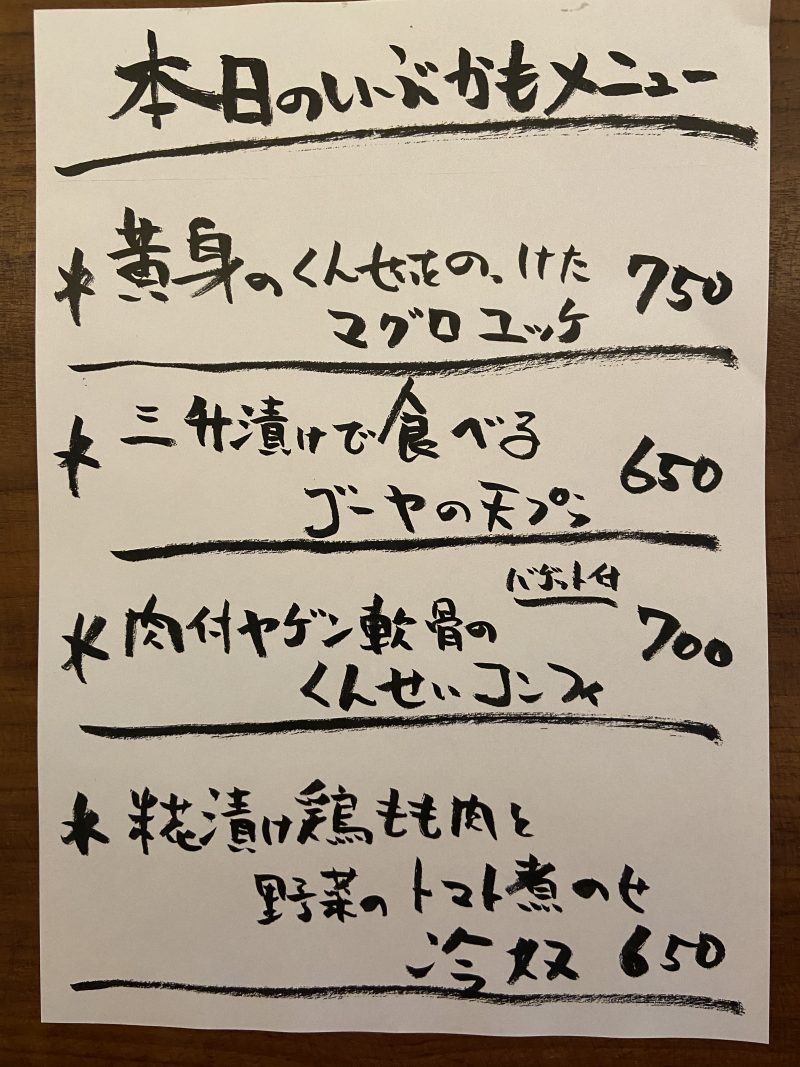 本日のいぶかもメニュー
黄身のくんせいをの、けた 750
マグロユッケ
三升漬けで食べる
ゴーヤの天プラ 650
バゲット付
肉付ヤゲン軟骨の 700
くんせいコンフィ
糀漬け鶏もも肉と
野菜のトマト煮のせ
冷奴 650